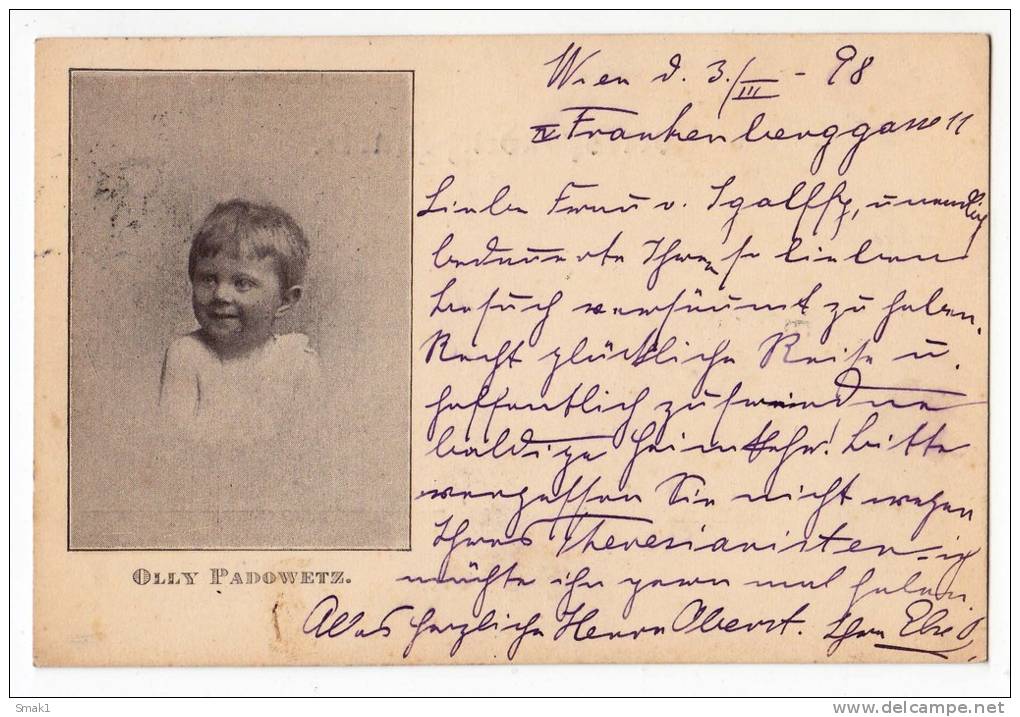 Wien d. 3./III - 98
IV Frankenberggasse 11
Liebe Frau v. Igalffy, unendlich
bedauerte Ihren so lieben
Besuch versäumt zu haben.
Recht glückliche Reise u.
hoffentlich zufriedene
baldige Heimkehr! Bitte
vergessen Sie nicht wegen
Ihres Theresianisten - ich
möchte ihn gern mal holen.
Alles herzliche Herrn Oberst. Ihre
OLLY PADOWETZ.
Smak1
http://www.delcampe.net